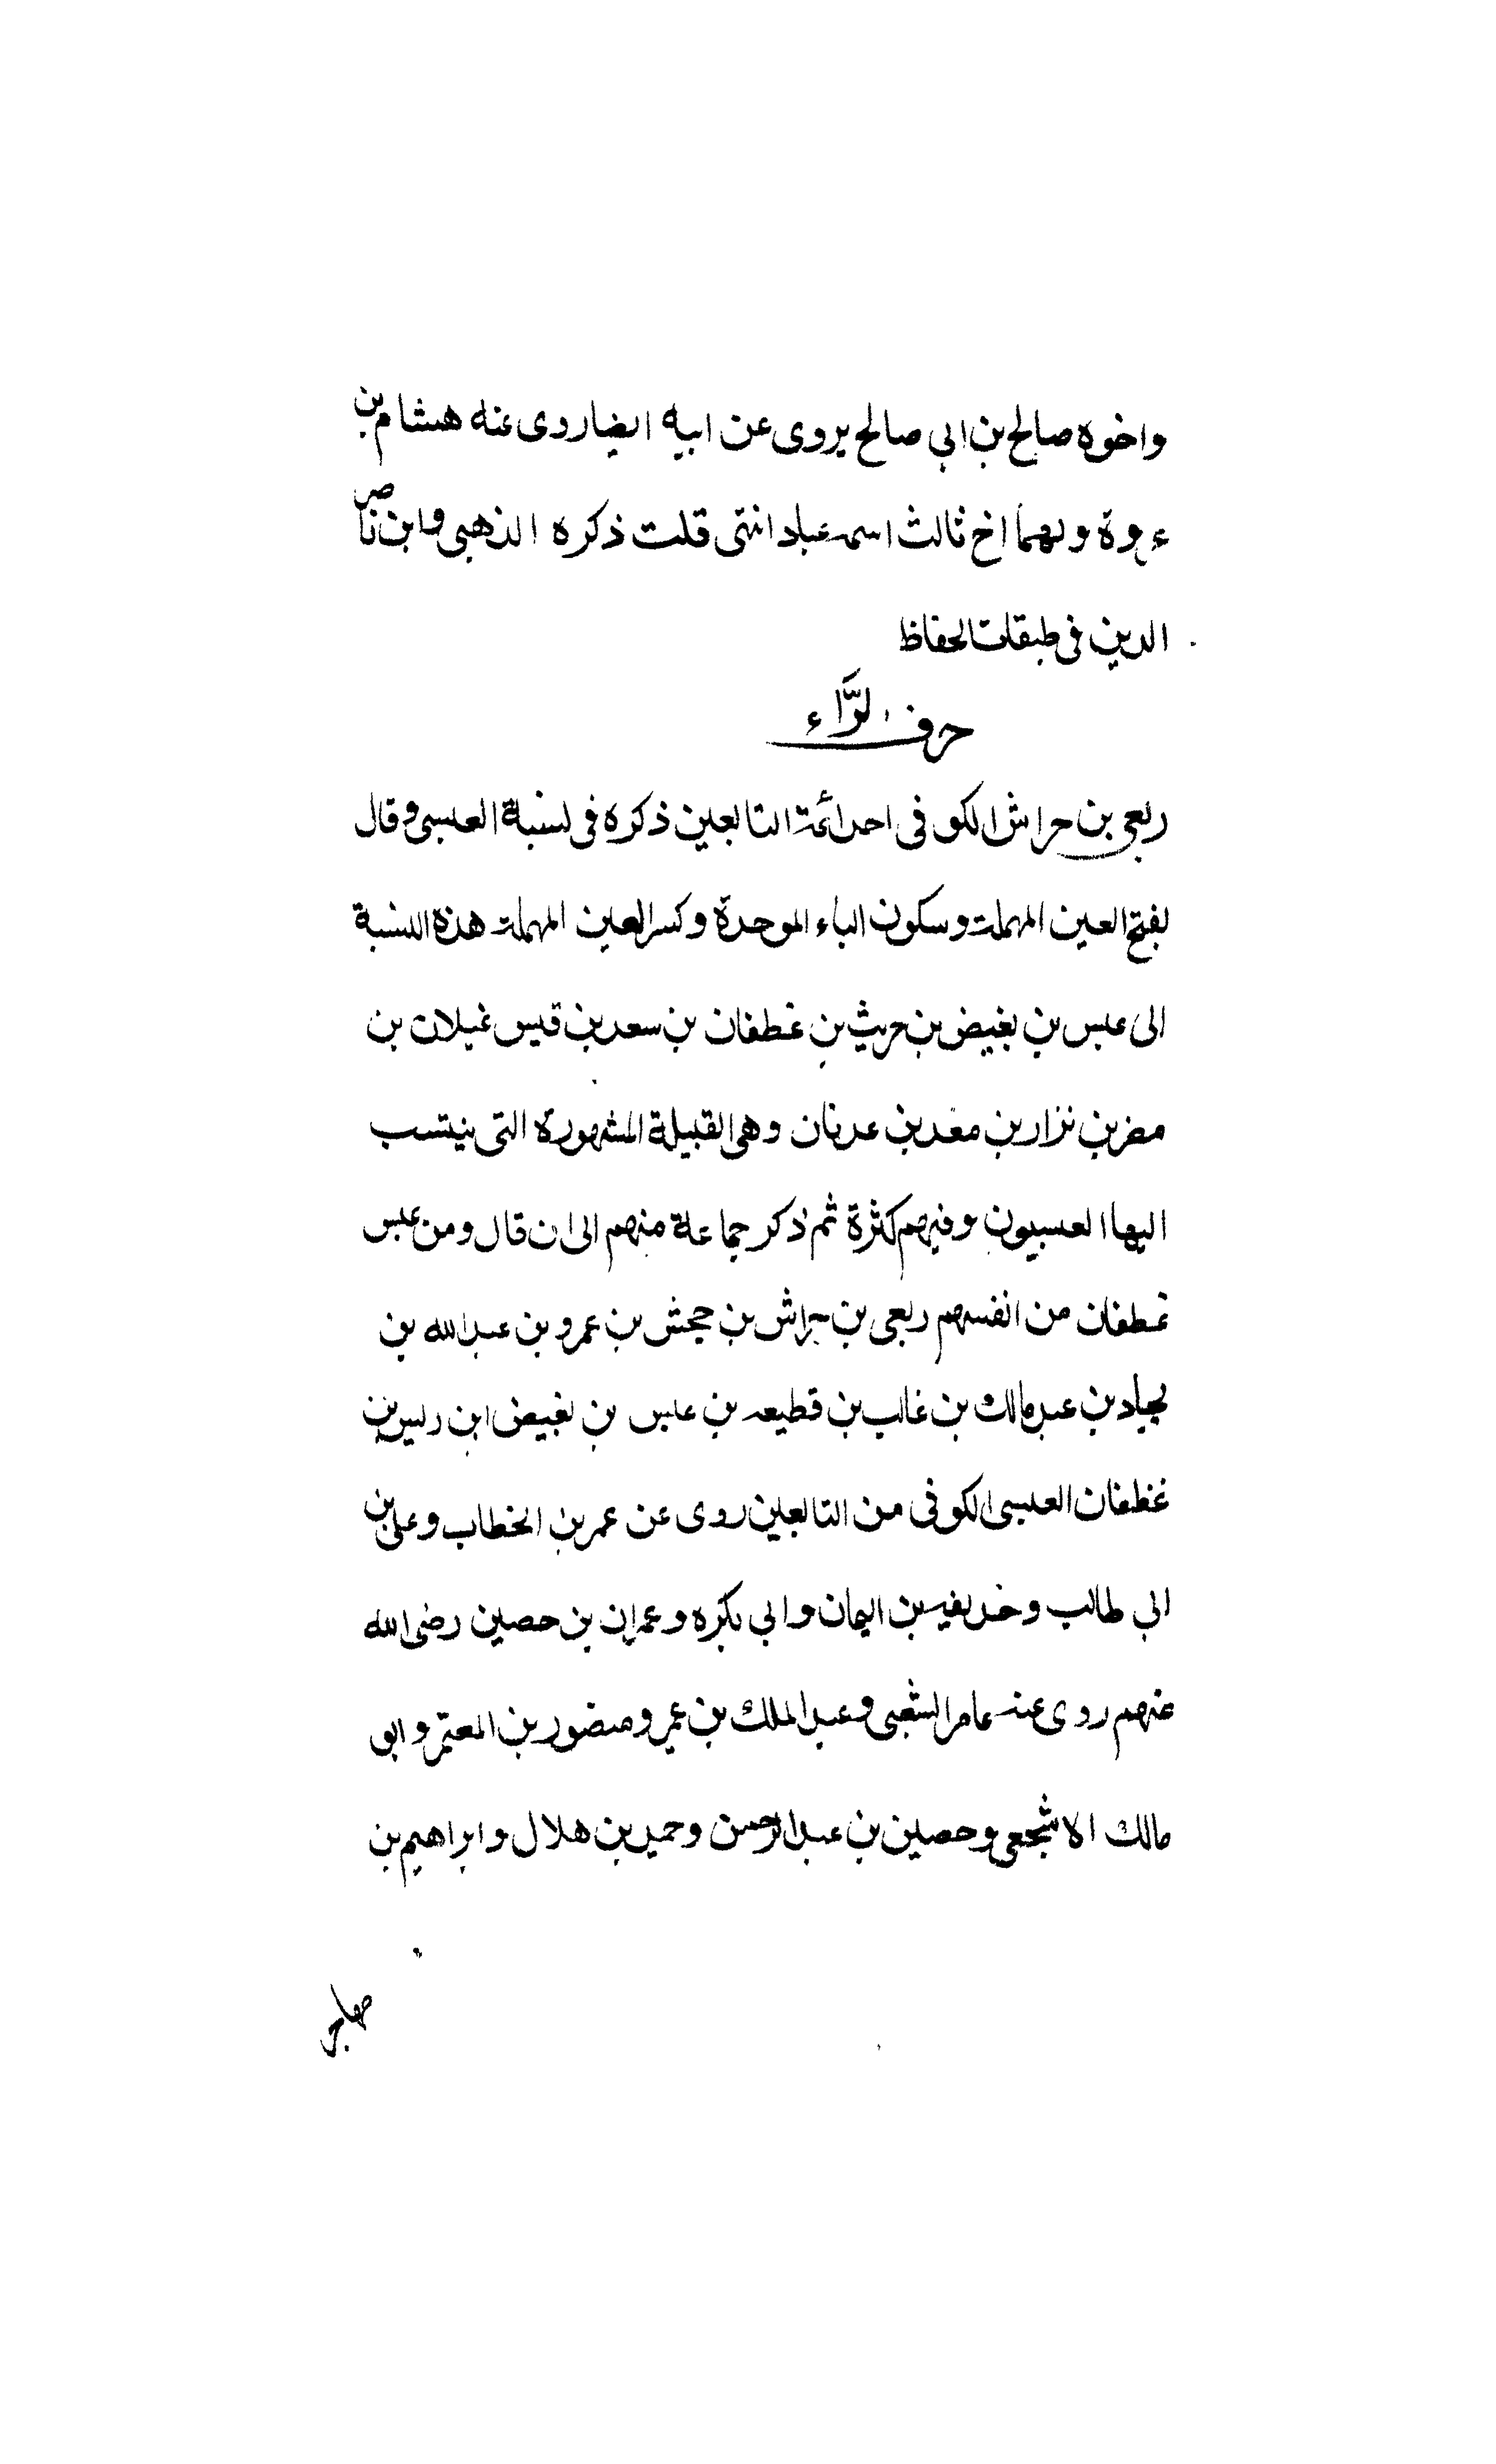 واخوه صالح بن ابي صالح يروى عن ابيه ايضا روى عنه هشام بن
عروة ولهما اخ ثالث اسمه عباد انتهى قلت ذكره الذهبي وابن ناصر
الدين فى طبقات الحفاظ
حرف الرَّاء
ربعي بن حراش الكوفى احد ائمة التابعين ذكره فى نسبة العبسى وقال
بفتح العين المهملة وسكون الباء الموحدة وكسر العين المهملة هذه النسبة
الى عبس بن بغيض بن حريث بن غطفان بن سعد بن قيس غيلان بن
مضر بن نزار بن معد بن عدنان وهى القبيلة المشهورة التى ينتسب
اليها العبسيون وفيهم كثرة ثم ذكر جماعة منهم الى ان قال ومن عبس
غطفان من انفسهم ربعى بن حراش بن جحش بن عمرو بن عبد الله بن
بجاد بن عبد مالك بن غالب بن قطيعه بن عبس بن بغيض ابن ريس بن
غطفان العبسى الكوفى من التابعين روى عن عمر بن الخطاب وعلى بن
ابى طالب وحذيفه بن اليمان وابي بكره وعمران بن حصين رضى الله
عنهم روى عنه عامر الشعبى وعبد الملك بن عمير ومنصور بن المعتمر وابو
مالك الاشجعى وحصين بن عبد الرحمن وحميد بن هلال وابراهيم بن
مهاجر